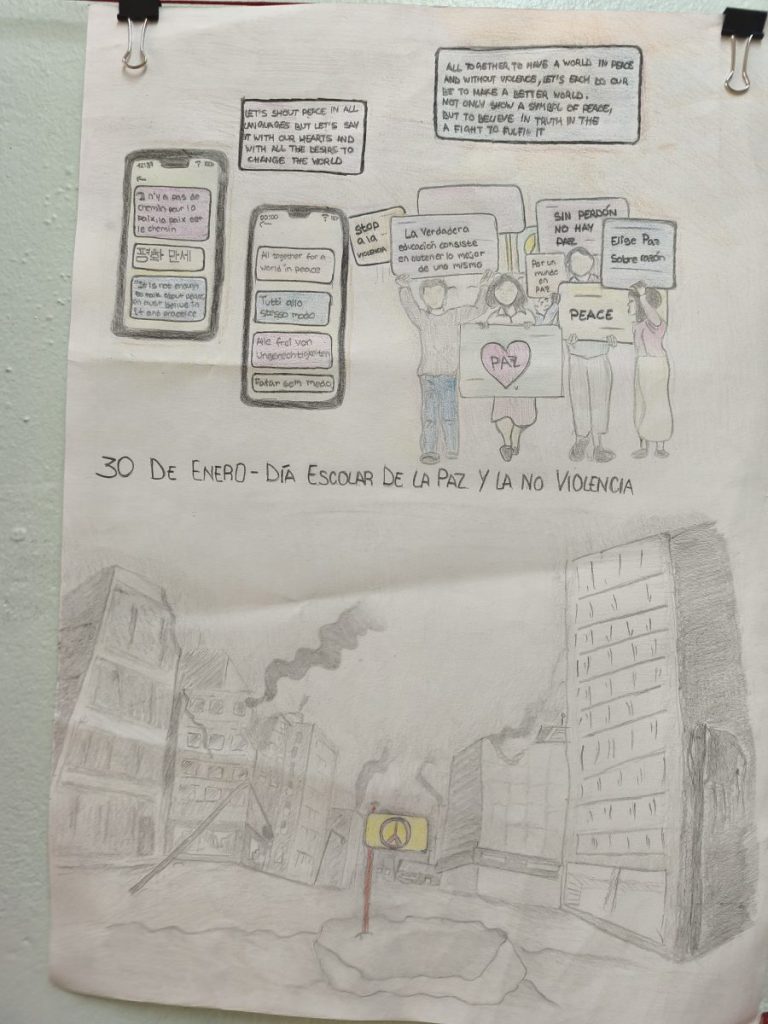 ALL TOGETHER, TO HAVE A WORLD IN PEACE
AND WITHOUT VIOLENCE, LET'S EACH DO OUR
BIT TO MAKE A BETTER WORLD.
NOT ONLY SHOW A SYMBOL OF PEACE,
BUT TO BELIEVE IN TRUTH IN THE
A FIGHT TO FULFIL IT
LET'S SHOUT PEACE IN ALL
LANGUAGES BUT LET'S SAY
IT WITH OUR HEARTS AND
WITH ALL THE DESIRE TO
CHANGE THE WORLD
Il n'y a pas de
chemin pour la
paix, la paix est
le chemin
평화 만세
"It is not enough
to talk about peace,
on must believe in
it and practice
00:00
All together for a
world in peace
Tutti allo
stesso modo
Alle frei von
Ungerechtigkeiten
Falar sem medo
Stop
a la
VIOLENCIA
La Verdadera
educación consiste
en obtener lo mejor
de uno mismo
SIN PERDÓN
NO HAY
PAZ
Por un
mundo
en
PAZ
Elige Paz
Sobre razón
PEACE
PAZ
30 DE ENERO - DÍA ESCOLAR DE LA PAZ Y LA NO VIOLENCIA